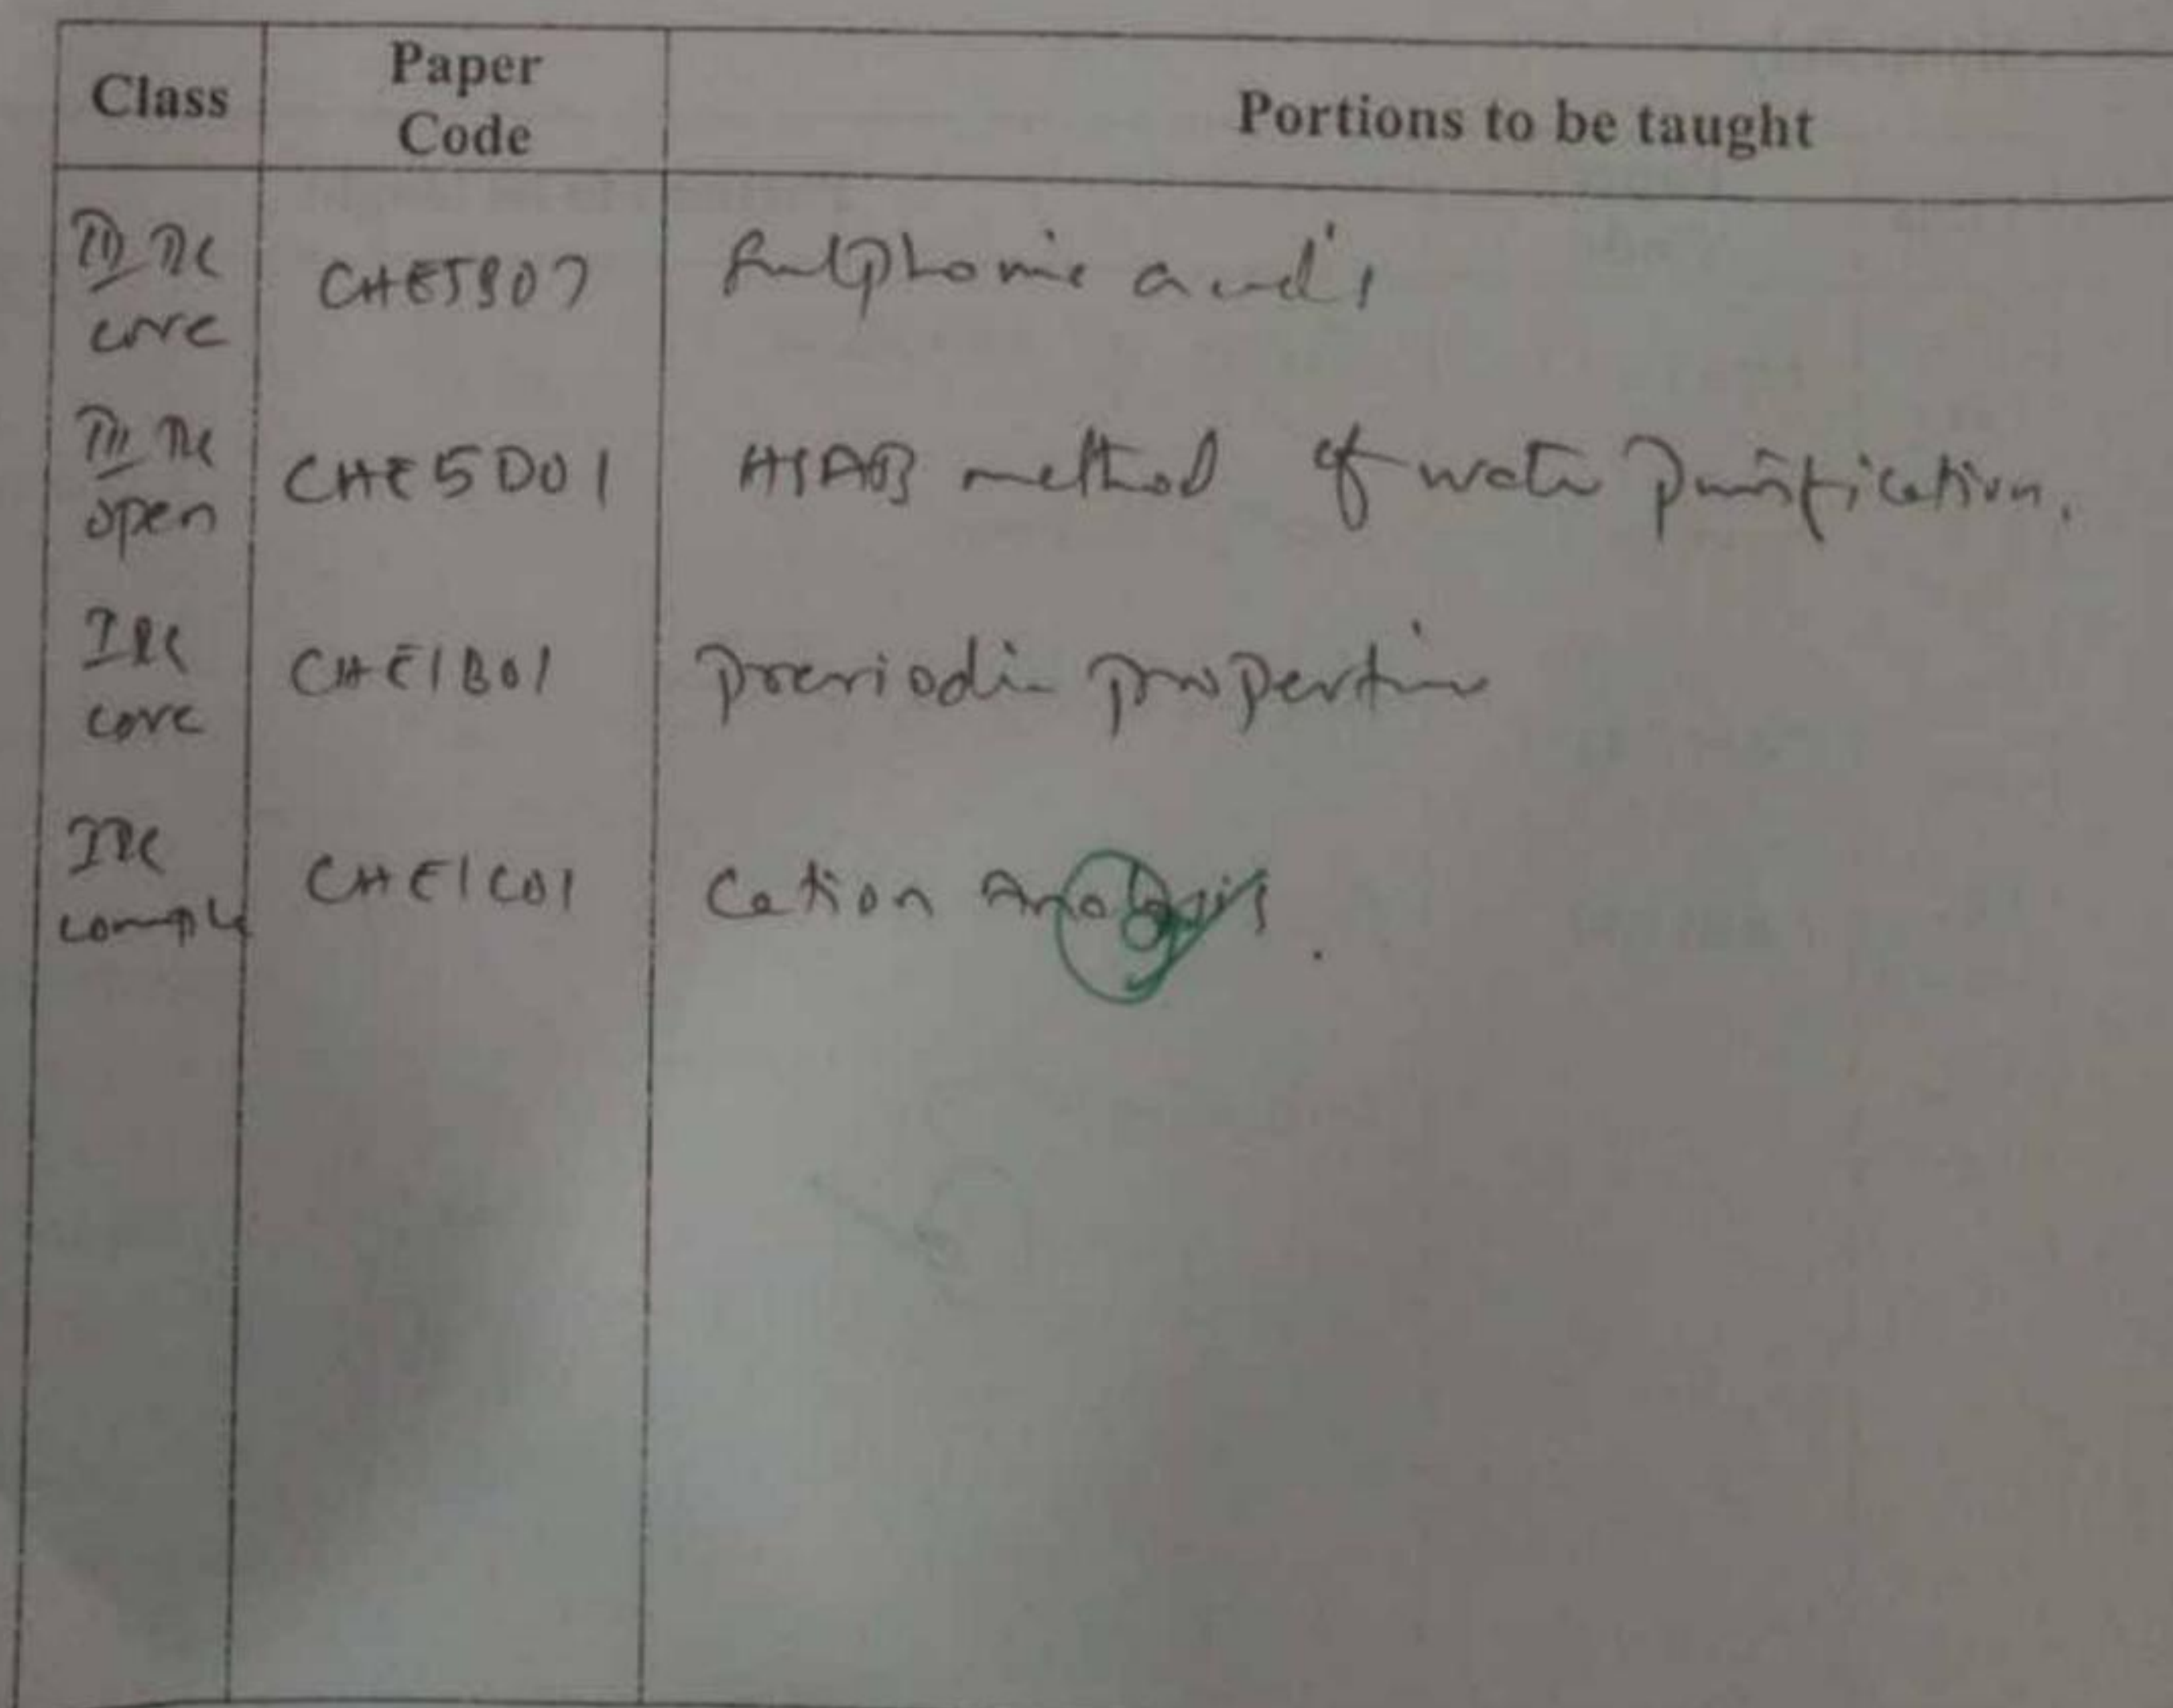 Class
Paper Code
Portions to be taught
III DC core
CHE5B07
Sulphonic acid's
III DC open
CHE5D01
HSAB method of water purification.
I DC core
CHE1B01
preriodic properties
I DC comple
CHE1C01
Cation Analysis.